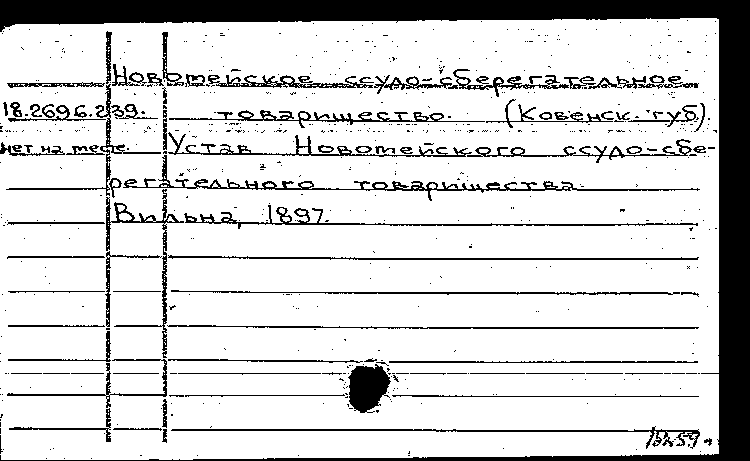 Новотейское ссудо-сберегательное
18.269б.239. товарищество. (Ковенск. губ).
нет на месте. Устав Новотейского ссудо-сбе-
регательного товарищества.
Вильна, 1897.